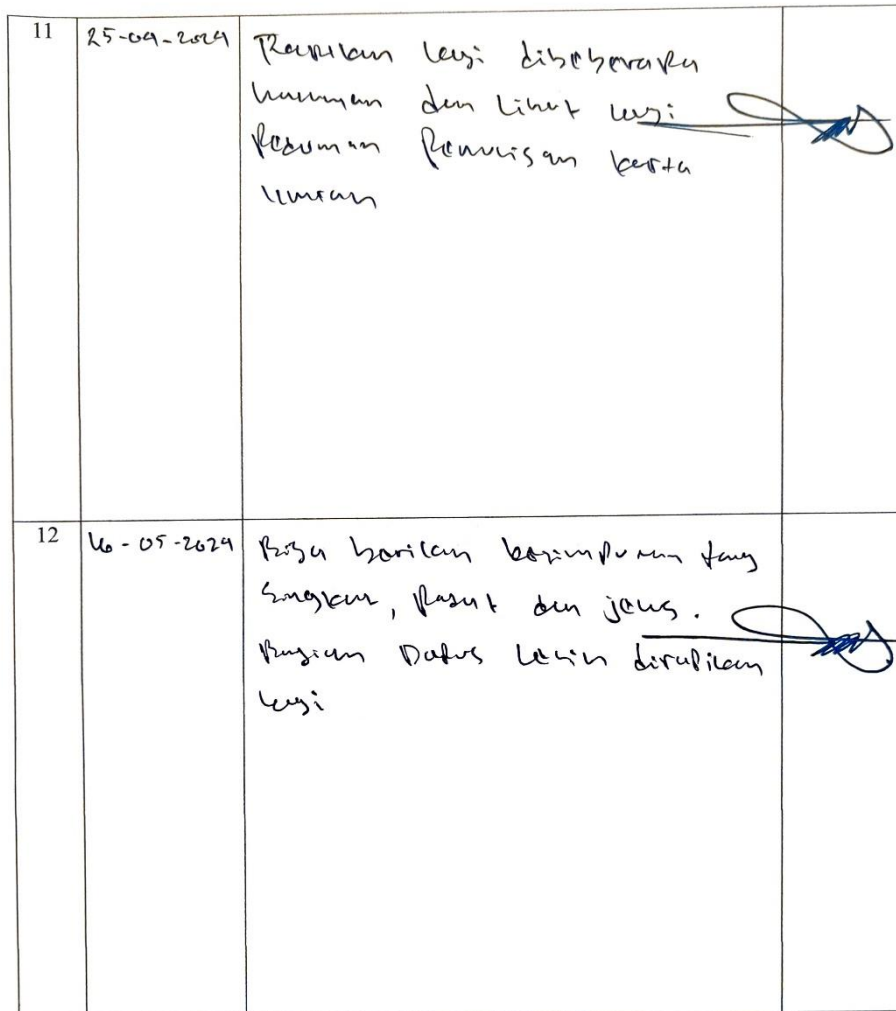 11
25-04-2024
Rapikan lagi dibeberapa
halaman dan lihat lagi
Pedoman Penulisan karya
ilmiah
12
16-05-2024
Bisa berikan kesimpulan yang
singkat, padat dan jelas.
Bagian Daftar lebih dirapikan
lagi